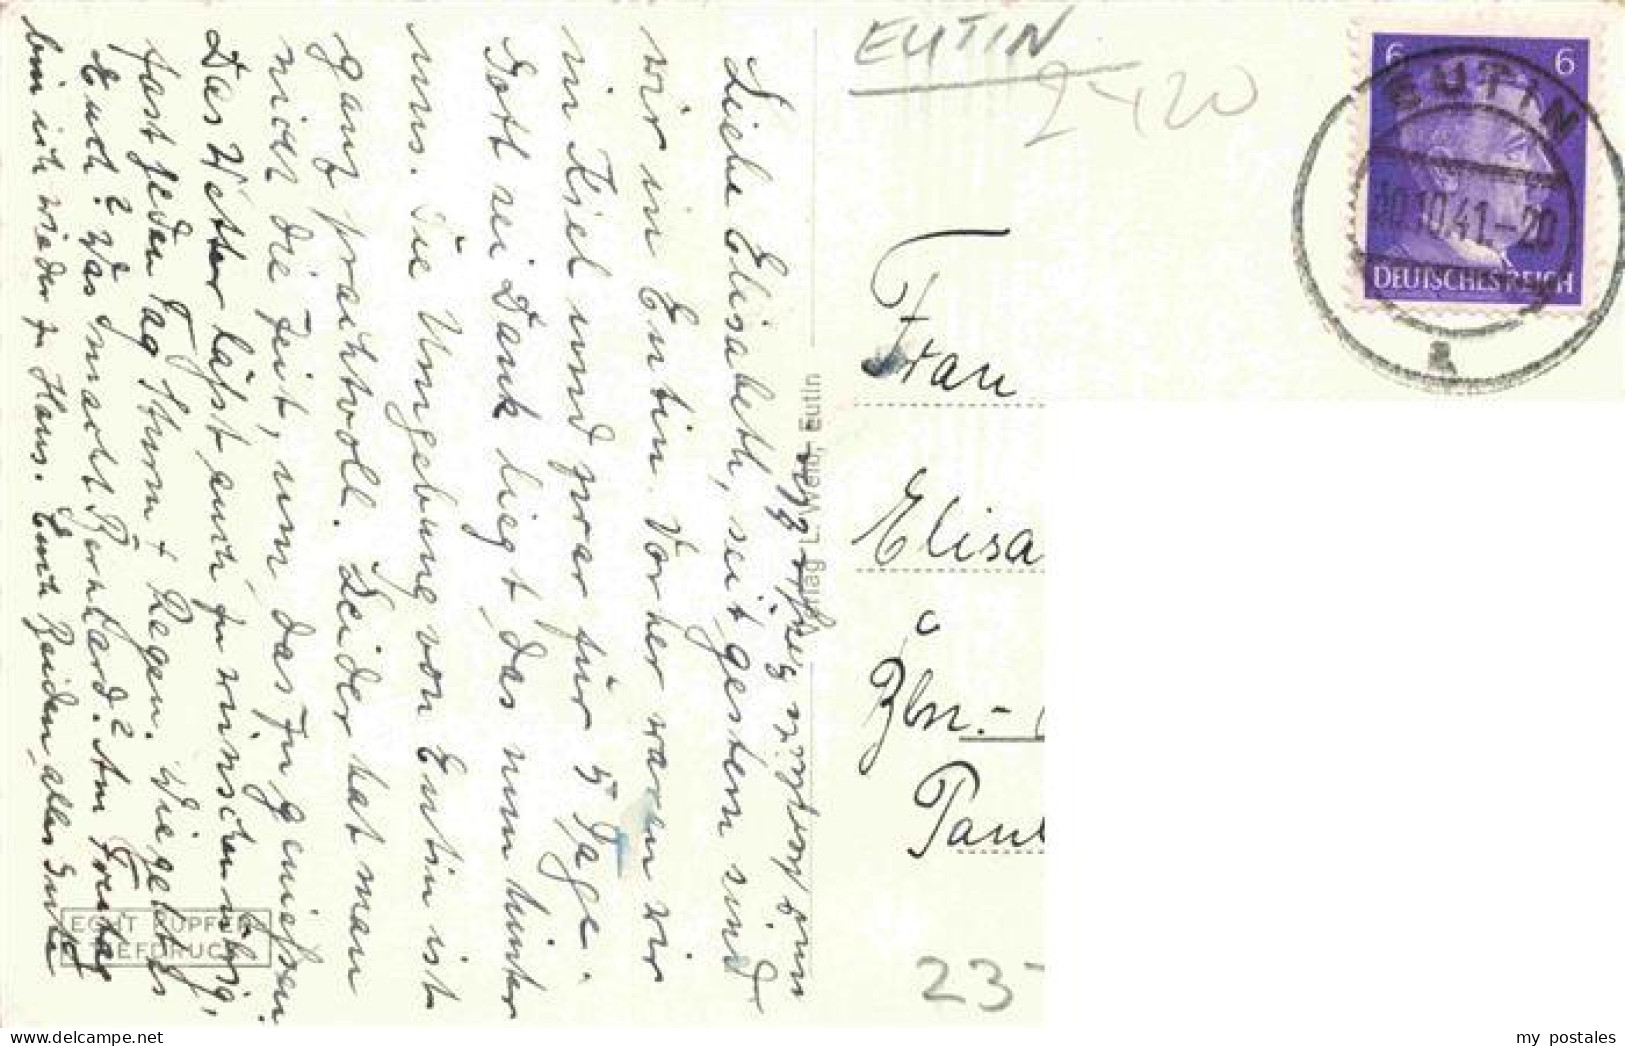 Liebe Elisabeth, seit gestern sind
wir in Eutin. Vorher waren wir
in Kiel und zwar für 5 Tage.
Gott sei Dank liegt das nun hinter
uns. Die Umgebung von Eutin ist
ganz prachtvoll. Leider hat man
nicht die Zeit, um das zu genießen.
Das Wetter läßt auch zu wünschen übrig,
fast jeden Tag Sturm + Regen. Wie geht es
Euch? Was macht Bernhard? Am Freitag
bin ich wieder zu Haus. Euch Beiden alles Gute
und herzliche Grüße
Verlag L. Weild, Eutin
ECHT KUPFER-
TIEFDRUCK
EUTIN
2420
6 6
EUTIN
10.10.41.-20
a
DEUTSCHES REICH
Frau
Elisa
Bln.-
Paul
23-
my postales
delcampe.net